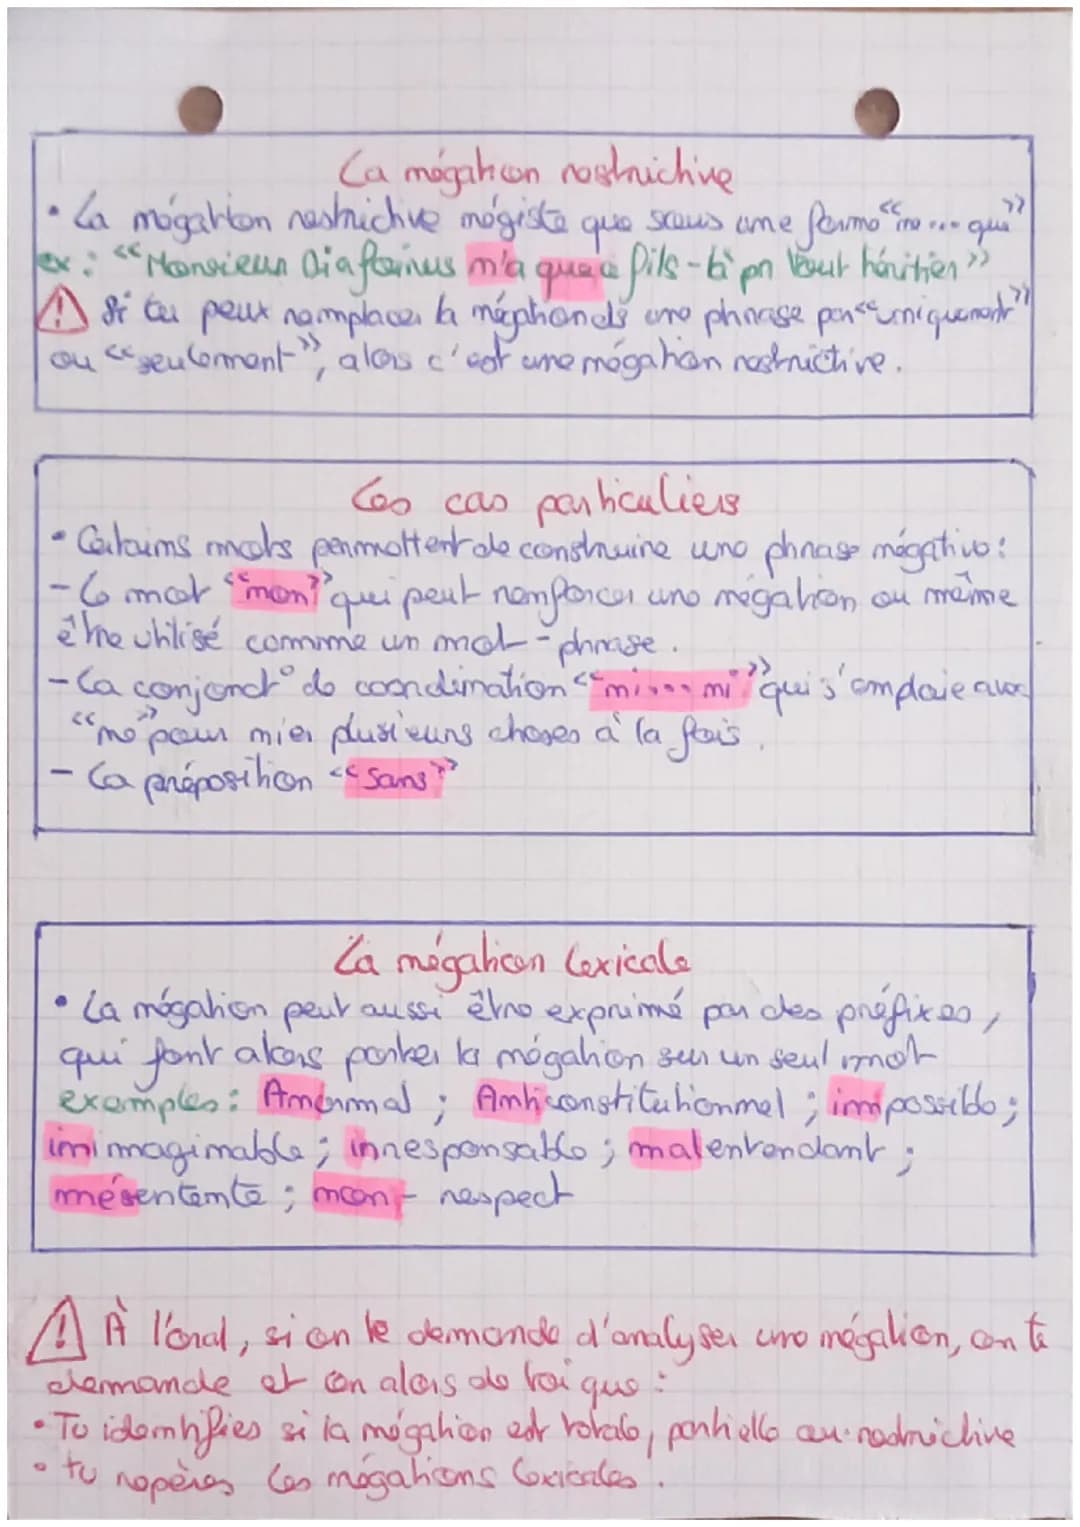 La négation restrictive
• La négation restrictive n'égiste que sous une forme "ne... que"
ex: "Monsieur Diafoirus n'a que ce fils-là pr tout héritier"
⚠ Si tu peux remplacer la négation ds une phrase par "uniquement"
ou "seulement", alors c'est une négation restrictive.
Les cas particuliers
• Certains mots permettent de construire une phrase négative:
- Le mot "non" qui peut renforcer une négation ou même
être utilisé comme un mot-phrase.
- La conjonct° de coordination "ni... ni" qui s'emploie avec
"ne" pour nier plusieurs choses à la fois.
- La préposition "sans"
La négation lexicale
• La négation peut aussi être exprimé par des préfixes,
qui font alors porter la négation sur un seul mot
exemples: Anormal ; Anticonstitutionnel ; impossible ;
inimaginable ; irresponsable ; malentendant ;
mésentente ; non-respect
⚠ À l'oral, si on te demande d'analyser une négation, on te
demande et on alors de toi que :
• Tu identifies si la négation est totale, partielle ou restrictive
• tu repères les négations lexicales.